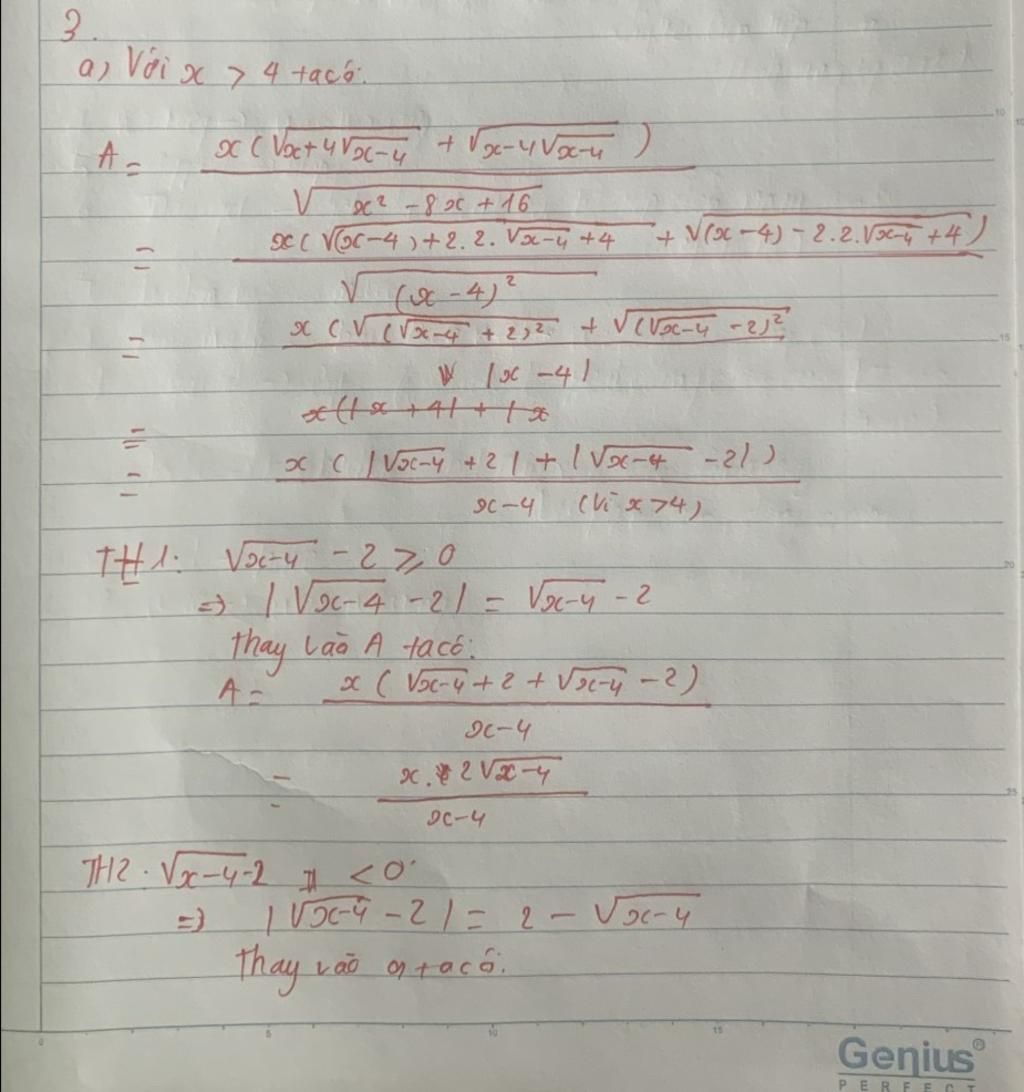 3.
a) Với x > 4 ta có:
A = x(√(x+4√(x-4)) + √(x-4√(x-4))) / √(x² - 8x + 16)
= x(√((x-4)+2.2.√(x-4)+4) + √((x-4)-2.2.√(x-4)+4)) / √((x-4)²)
= x(√((√(x-4)+2)²) + √((√(x-4)-2)²) / |x-4|
= x(|x+4|+|x
= x(|√(x-4)+2|+|√(x-4)-2|) / x-4 (Vì x>4)
TH1: √(x-4) - 2 ⩾ 0
=> |√(x-4) - 2| = √(x-4) - 2
Thay vào A ta có:
A = x(√(x-4)+2+√(x-4)-2) / x-4
= x.2√(x-4) / x-4
TH2. √(x-4)-2 < 0
=> |√(x-4) - 2| = 2 - √(x-4)
Thay vào a ta có:
0 5 10 15
10
15
20
25
Genius®
PERFECT